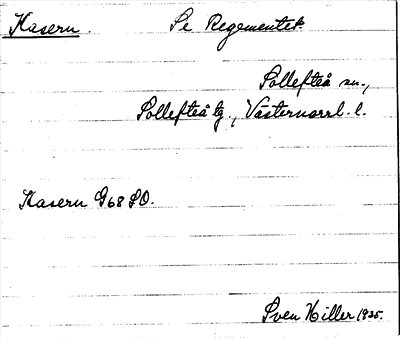 Kasern. Se Regementet
Sollefteå sn.,
Sollefteå tg., Västernorrl. l.
Kasern G68 SO.
Sven Hiller 1935.